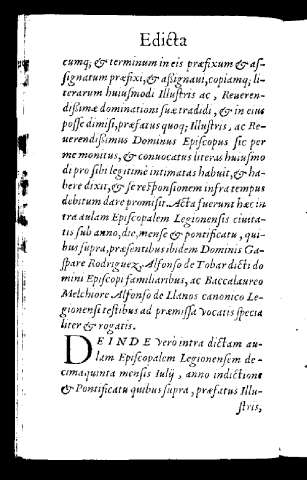 Edicta
cumq; & terminum in eis præfixum & as-
signatum præfixi, & assignaui, copiamq; li-
terarum huiusmodi Illustris ac, Reueren-
dissimæ dominationi suæ tradidi, & in eius
posse dimisi, præfatus quoq; Illustris, ac Re-
uerendissimus Dominus Episcopus sic per
me monitus, & conuocatus literas huiusmo
di pro sibi legitimè intimatas habuit, & ha-
bere dixit, & se responsionem infra tempus
debitum dare promisit. Acta fuerunt hæc in
tra aulam Episcopalem Legionensis ciuita-
tis sub anno, die, mense & pontificatu, qui-
bus supra, præsentibus ibidem Dominis Ga-
spare Rodriguez, Alfonso de Tobar dicti do
mini Episcopi familiaribus, ac Baccalaureo
Melchiore Alfonso de Llanos canonico Le-
gionensi testibus ad præmissa vocatis specia
liter & rogatis.
DEINDE vero intra dictam au-
lam Episcopalem Legionensem de-
cimaquinta mensis Iulij, anno indictione
& Pontificatu quibus supra, præfatus Illu-
stris,